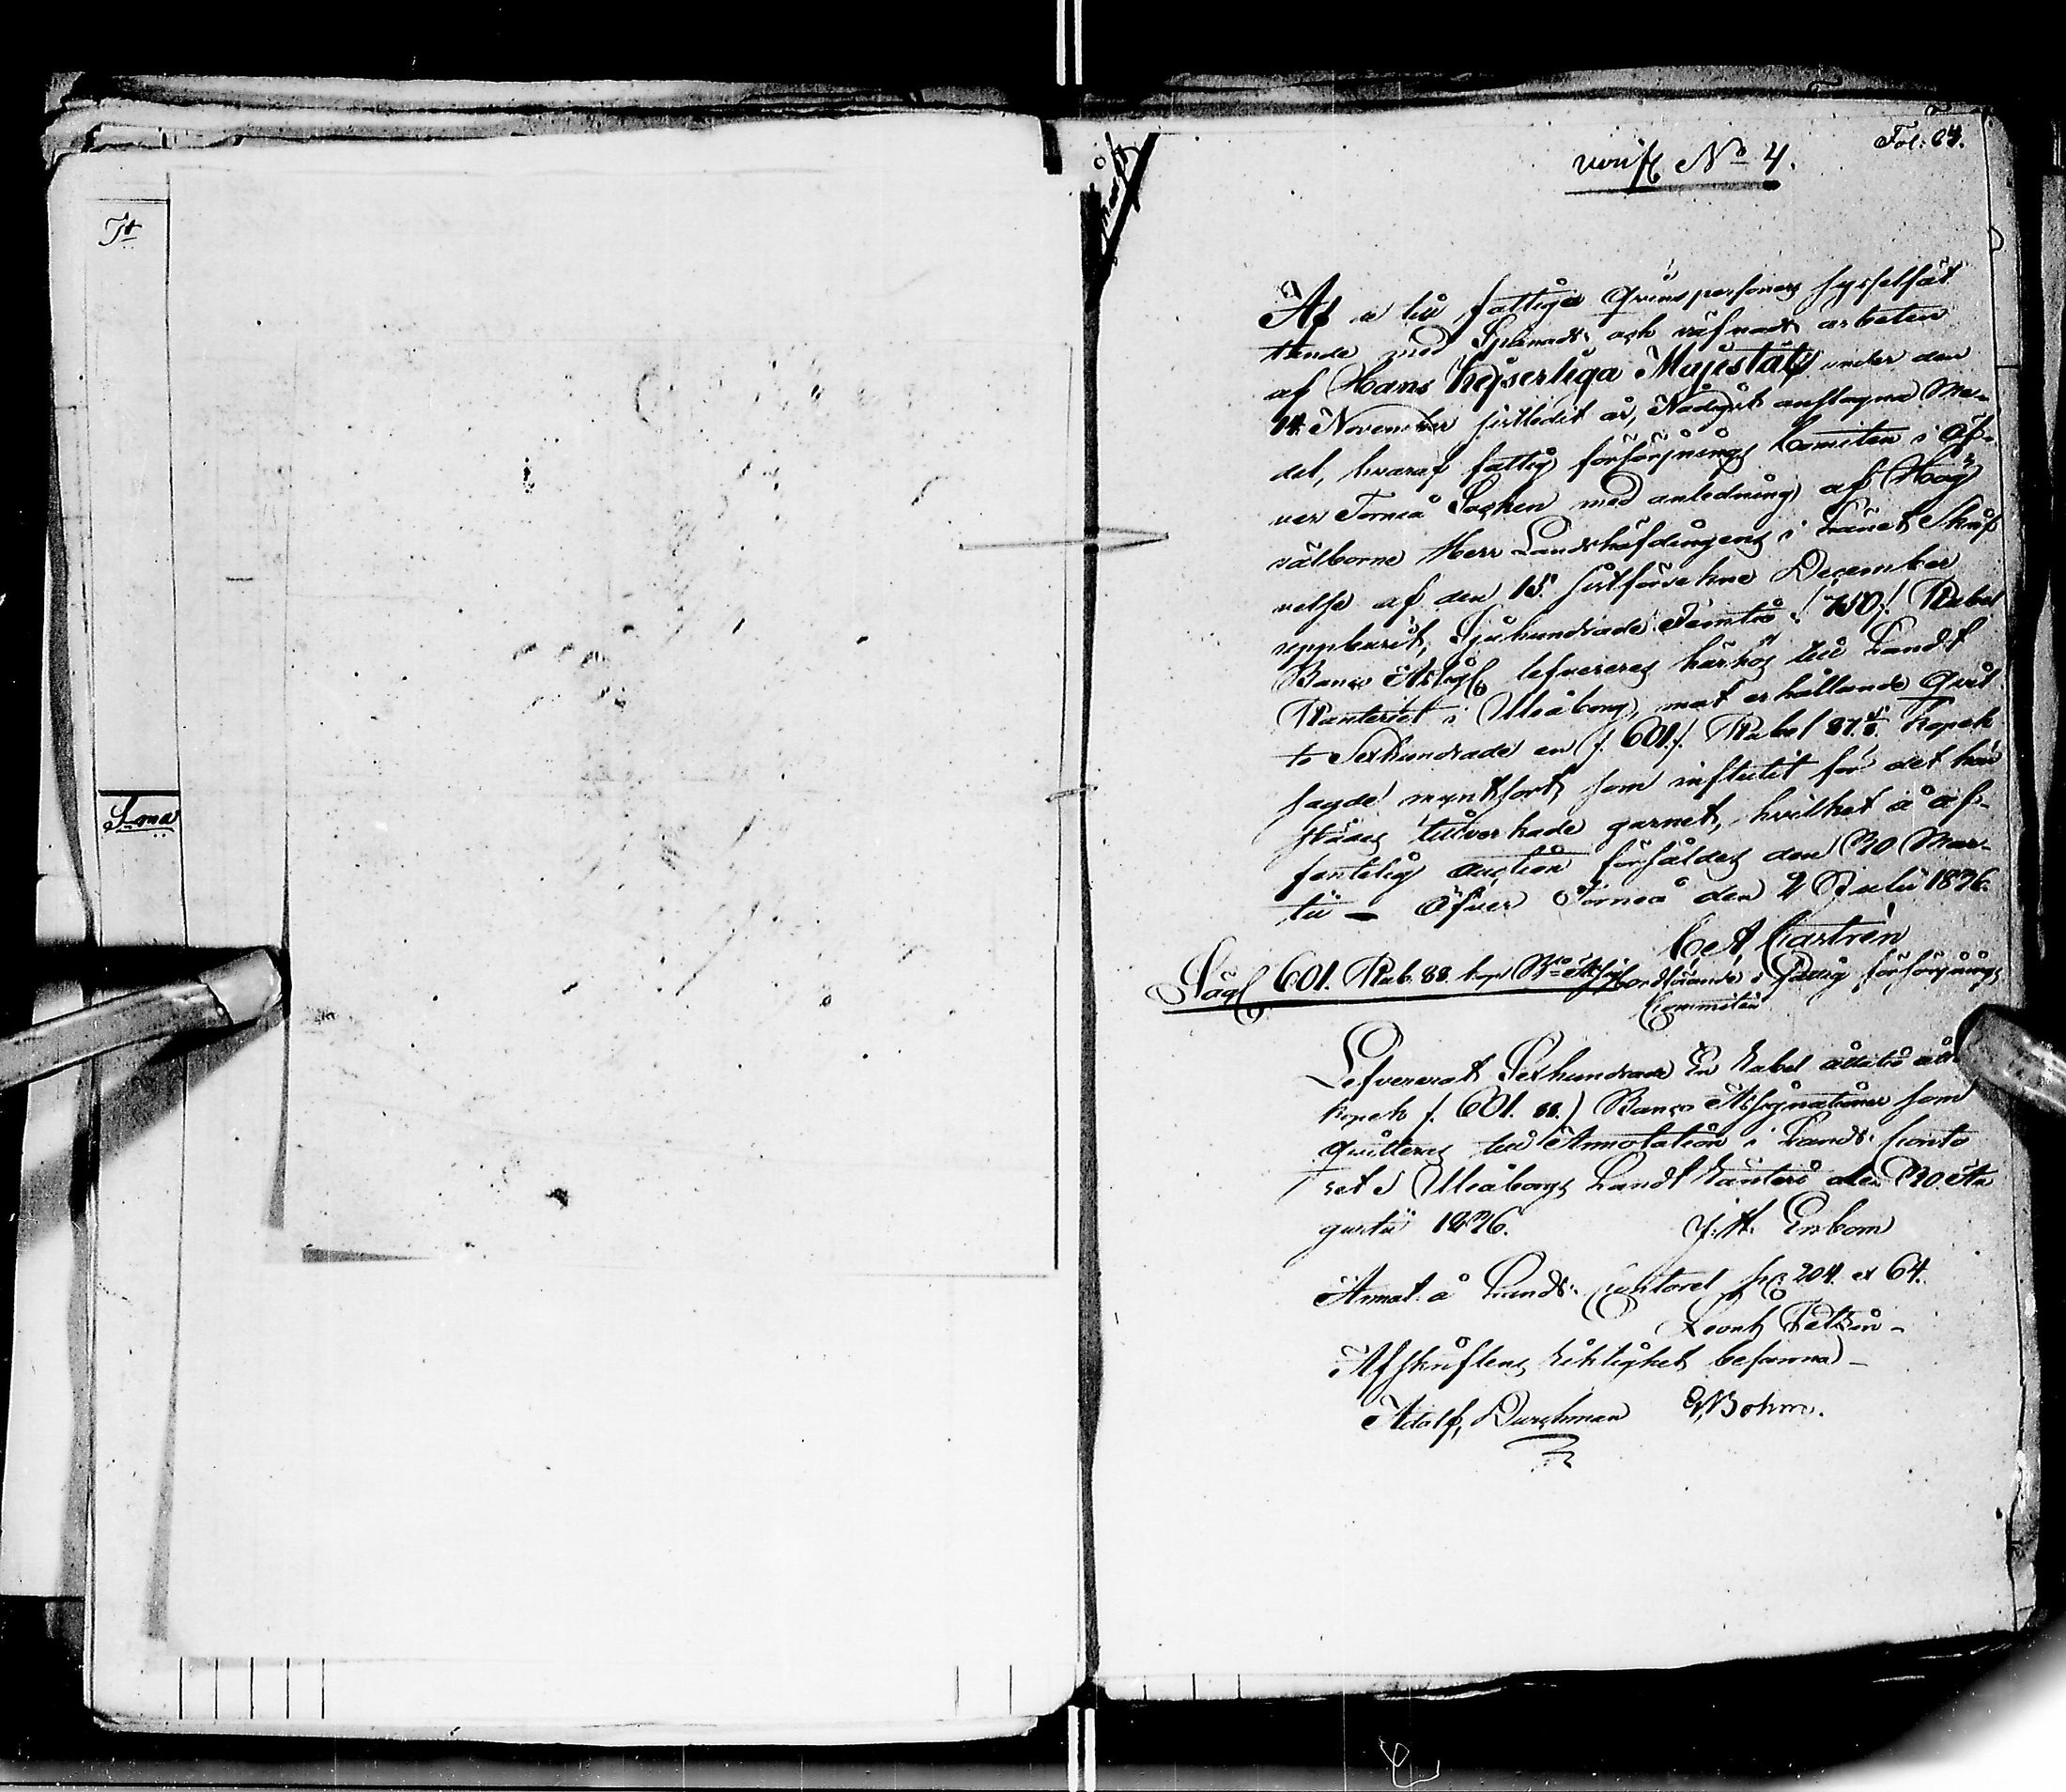 Tt
S-ma
Fol: 64.
verif No 4.
Af de till fattige Qvinspersoners sysselsät
tande med Spånads och väfnads arbeten
af Hans Kejserliga Majestät under den
14 November sistledit år, Nådigst anslagne Me-
del, hvaraf fattig försörjnings Comiten i Öf-
ver Torneå Sochen med anledning af Hög
välborne Herr Landshöfdingens i Länet Skrif
velse af den 15 sistförvekne December
uppburit, Sjuhundrade Femtio /: 750 :/ Rubel
Banco Assign lefvereras härhos till Landt
Ränteriet i Uleåborg, mot erhållande Qvit
to Sexhundrade en /: 601 :/ Rubel 87 Kopek
sagde myntsort, som influtit för det här
städes tillverkade garnet, hvilket å of-
fentelig Auction försåldes den 30 Mar-
tii — Öfver Torneå den 2 Julii 1836.
Castrén
Säg 601. Rub. 88. kop Bco Assig Ordförande i Fattig försörjnings
Committén
Lefvererat Sexhundrade En Rubel åttatio åtta
Kopek /: 601. 88. / Banco Assignationer som
qvitteras till Annotation i Lands Conto
ret i Uleåborgs Landt Ränteri den 30 Au
gustii 1836. J. A. Enbom
Annot. å Lands Contoret 204. et 64.
Afskriftens riktighet befanna —
Adolf, Durchman Bohm.